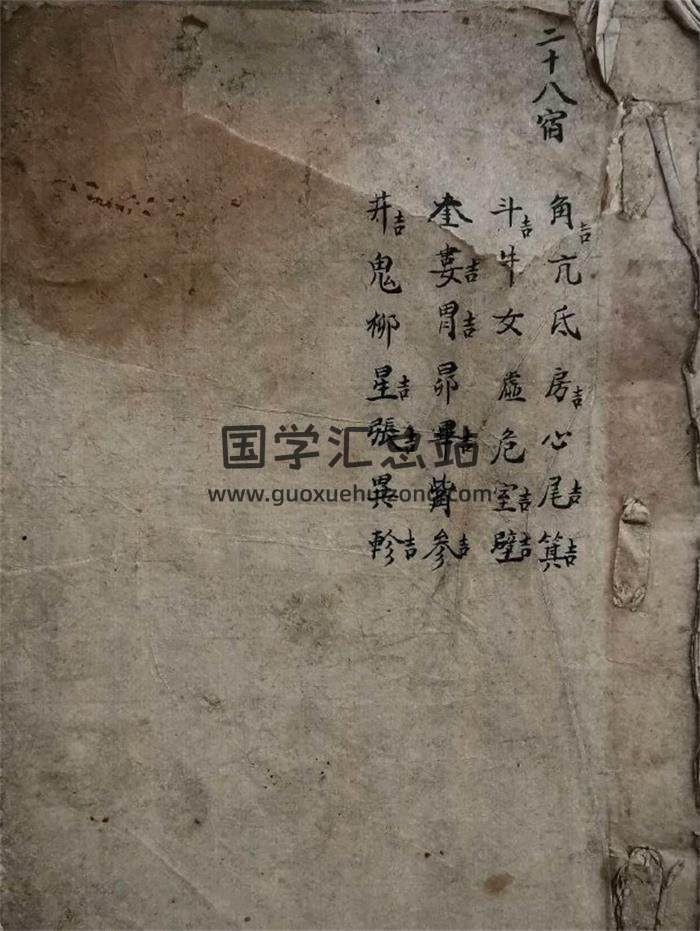 二十八宿
角吉亢氐房吉心尾吉箕吉
斗吉牛女虛危室吉壁吉
奎婁吉胃吉昴畢吉觜參吉
井吉鬼柳星吉張吉翼軫吉
国学汇总站
www.guoxuehuizong.com